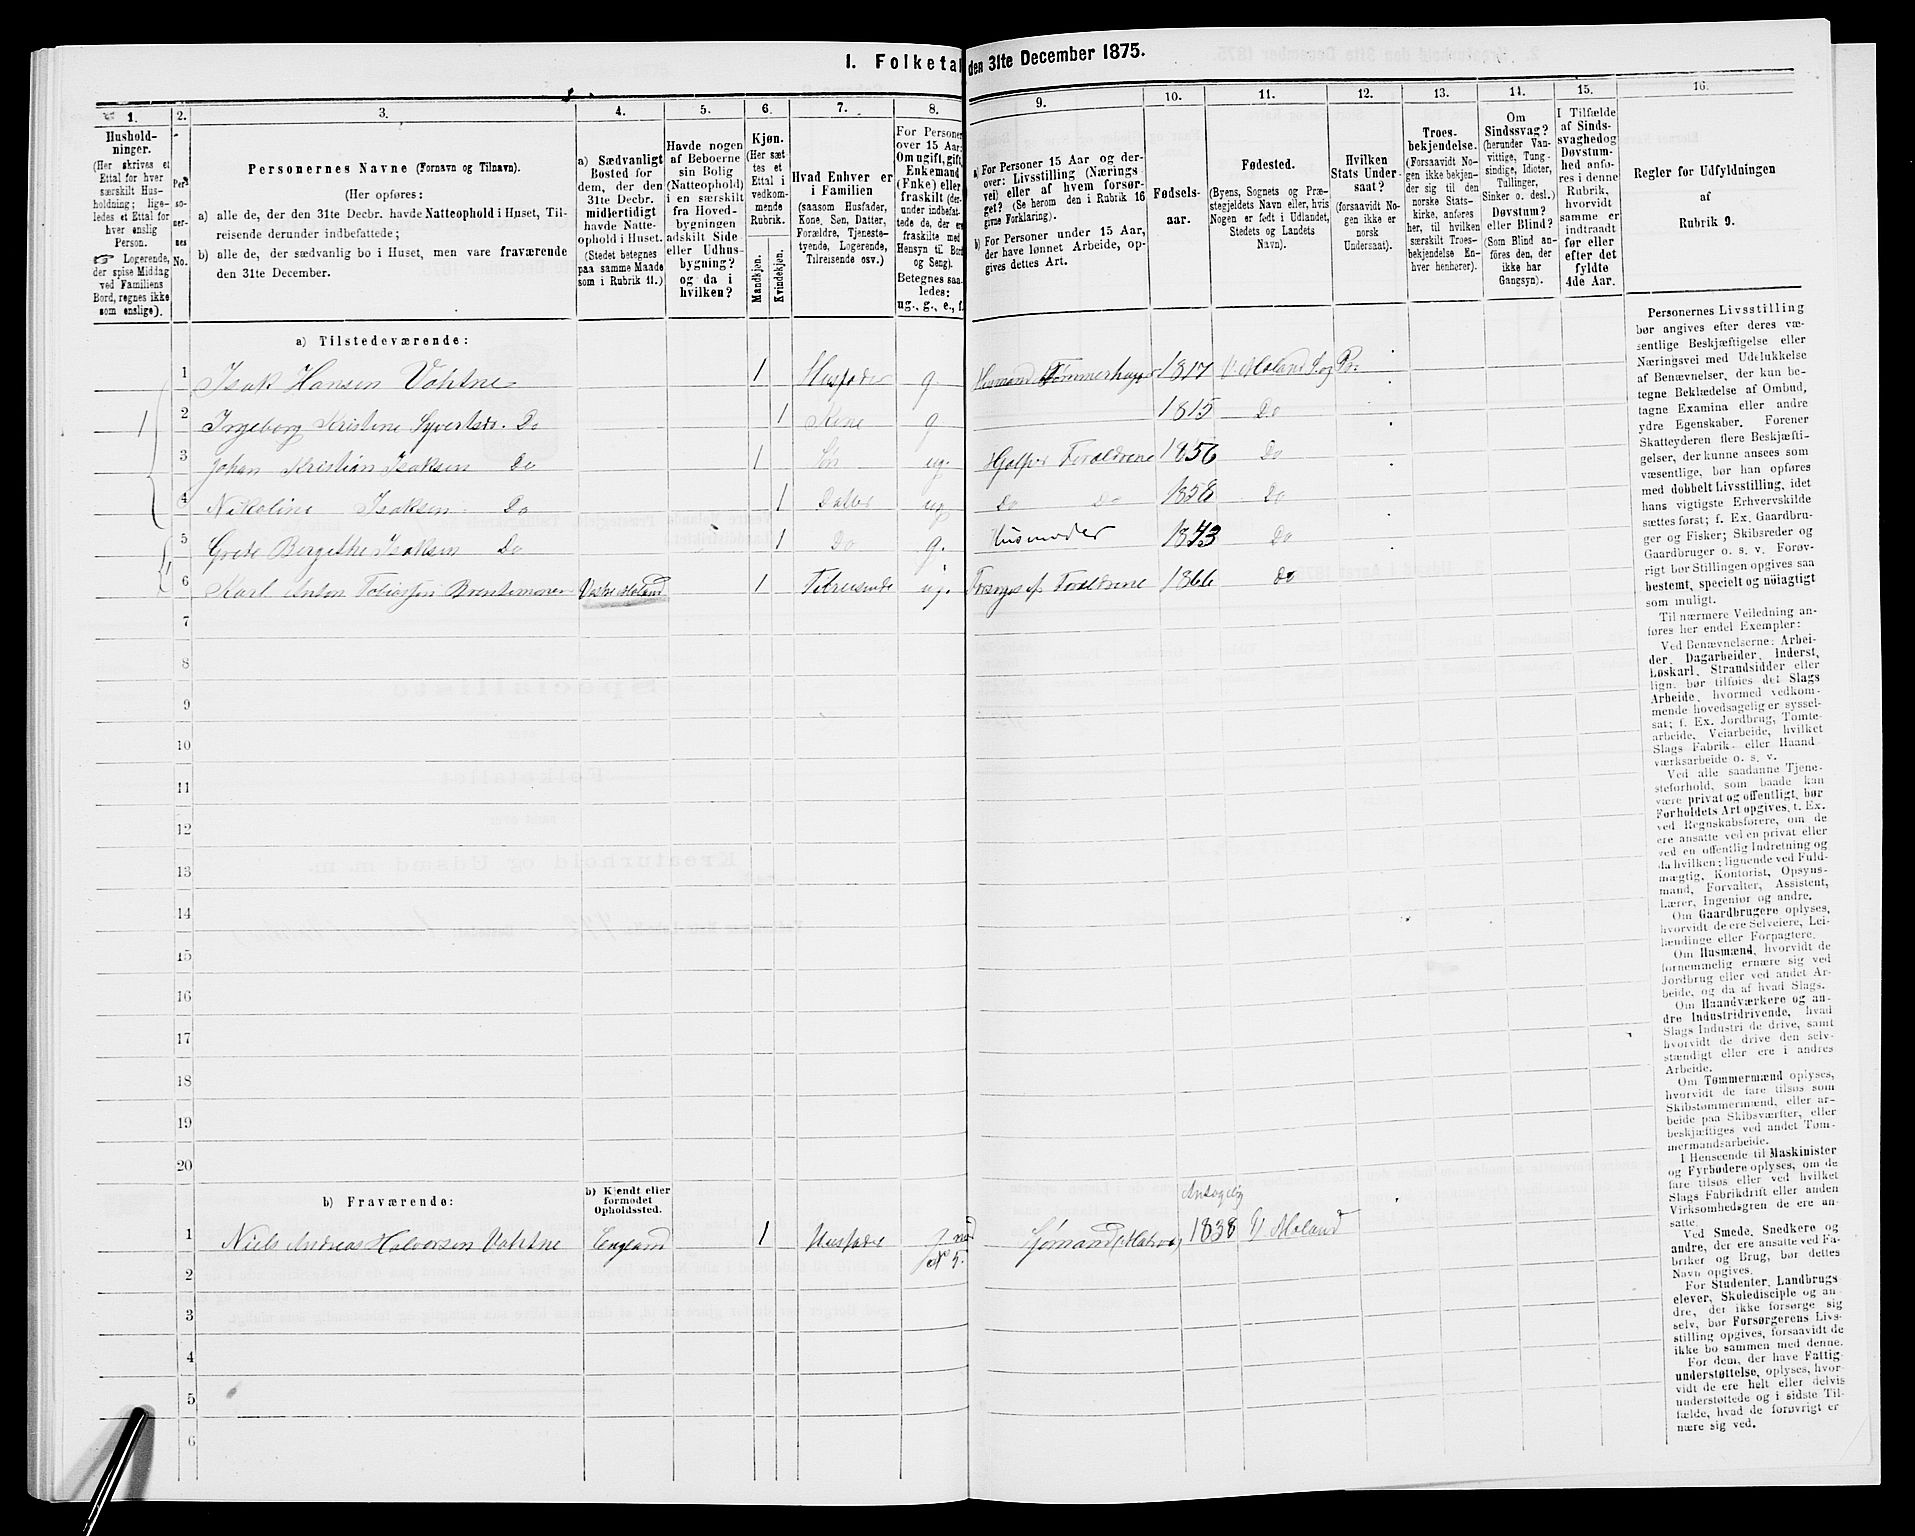 I. Folketal den 31te December 1875.
1.
Hushold-
ninger.
(Her skrives et
Ettal for hver
særskilt Hus-
holdning; lige-
ledes et Ettal for
hver enslig
Person.
☞ Logerende,
der spise Middag
ved Familiens
Bord, regnes ikke
som enslige).
2.
Per-
so-
ner-
nes
No.
3.
Personernes Navne (Fornavn og Tilnavn).
(Her opføres:
a) alle de, der den 31te Decbr. havde Natteophold i Huset, Til-
reisende derunder indbefattede;
b) alle de, der sædvanlig bo i Huset, men vare fraværende
den 31te December.
4.
a) Sædvanligt
Bosted for
dem, der den
31te Decbr.
midlertidigt
havde Natte-
ophold i Huset.
(Stedet betegnes
paa samme Maade
som i Rubrik 11.)
5.
Havde nogen
af Beboerne
sin Bolig
(Natteophold)
i en særskilt
fra Hoved-
bygningen
adskilt Side
eller Udhus-
bygning?
og da i
hvilken?
6.
Kjøn.
(Her sæt-
tes et
Ettal i
vedkom-
mende
Rubrik.
Mandkjøn.
Kvindekjøn.
7.
Hvad Enhver er
i Familien
(saasom Husfader,
Kone, Søn, Datter,
Forældre, Tjeneste-
tyende, Logerende,
Tilreisende osv.)
8.
For Personer
over 15 Aar:
Om ugift, gift,
Enkemand
(Enke) eller
fraskilt (der-
under indbefat-
tede de, der ere
fraskilte med
Hensyn til Bord
og Seng).
Betegnes saa-
ledes:
ug., g., e., f.
9.
a) For Personer 15 Aar og der-
over: Livsstilling (Nærings-
vei) eller af hvem forsør-
get? (Se herom den i Rubrik 16
givne Forklaring).
b) For Personer under 15 Aar,
der have lønnet Arbeide, op-
gives dettes Art.
10.
Fødsels-
aar.
11.
Fødested.
(Byens, Sognets og Præ-
stegjeldets Navn eller, hvis
Nogen er født i Udlandet,
Stedets og Landets
Navn).
12.
Hvilken
Stats Under-
saat?
(forsaavidt No-
gen ikke er
norsk
Undersaat).
13.
Troes-
bekjendelse.
(Forsaavidt No-
gen ikke bekjen-
der sig til den
norske Stats-
kirke, anføres
her, til hvilken
særskilt Troes-
bekjendelse En-
hver henhører).
14.
Om
Sindssvag?
(herunder Van-
vittige, Tung-
sindige, Idioter,
Tullinger,
Sinker o. desl.)
Døvstum?
eller Blind?
(Som Blind an-
føres den, der
ikke har
Gangsyn).
15.
I Tilfælde
af Sinds-
svaghed og
Døvstum-
hed anfø-
res i denne
Rubrik,
hvorvidt
samme er
indtraadt
før eller
efter det
fyldte
4de Aar.
16.
Regler for Udfyldningen
af
Rubrik 9.
a) Tilstedeværende:
1 Isak Hansen Vahtne 1 Husfader g. Husmand Tømmerhugger 1817 V. Moland S. og Pr.
1 2 Ingeborg Kristine Syvertsd. Do 1 Kone g 1815 Do
3 Johan Kristian Isaksen Do 1 Søn ug. Hjælper Forældrene 1856 Do
4 Nikoline Isaksen Do 1 Datter ug Do Do 1858 Do
1 5 Grete Bergethe Isaksen Do 1 Do g. Husmoder 1843 Do
6 Karl Anton Tobiassen Vestre Moland 1 Tilreisende ug. Forsørges af Forældrene 1866 do
7
8
9
10
11
12
13
14
15
16
17
18
19
20
b) Fraværende:
b) Kjendt eller
formodet
Opholdssted.
Antagelig
1 Niels Andreas Halvorsen Vahtne England 1 Husfader g Sjømand (Matros) 1838 V. Moland
2
3
4
5
6
Personernes Livsstilling
bør angives efter deres væ-
sentlige Beskjæftigelse eller
Næringsvei med Udelukkelse
af Benævnelser, der kun be-
tegne Beklædelse af Ombud,
tagne Examina eller andre
ydre Egenskaber. Forener
Skatteyderen flere Beskjæfti-
gelser, der kunne ansees som
væsentlige, bør han opføres
med dobbelt Livsstilling, idet
hans vigtigste Erhvervskilde
sættes først; f. Ex. Gaardbru-
ger og Fisker; Skibsreder og
Gaardbruger o. s. v. Forøv-
rigt bør Stillingen opgives saa
bestemt, specielt og nøiagtigt
som muligt.
Til nærmere Veiledning an-
føres her endel Exempler:
Ved Benævnelserne: Arbei-
der, Dagarbeider, Inderst,
Løskarl, Strandsidder eller
lign. bør tilføies det Slags
Arbeide, hvormed vedkom-
mende hovedsagelig er syssel-
sat; f. Ex. Jordbrug, Tomte-
arbeide, Veiarbeide, hvilket
Slags Fabrik- eller Haand-
værksarbeide o. s. v.
Ved alle saadanne Tjene-
steforhold, som baade kan
være privat og offentligt, bør
Forholdets Art opgives, t. Ex.
ved Regnskabsførere, om de
ere ansatte ved en privat eller
ved en offentlig Indretning og
da hvilken; lignende ved Fuld-
mægtig, Kontorist, Opsyns-
mand, Forvalter, Assistent,
Lærer, Ingeniør og andre.
Om Gaardbrugere oplyses,
hvorvidt de ere Selveiere, Lei-
lændinge eller Forpagtere.
Om Husmænd, hvorvidt de
fornemmelig ernære sig ved
Jordbrug eller ved andet Ar-
beide, og da af hvad Slags.
Om Haandværkere og an-
dre Industridrivende, hvad
Slags Industri de drive, samt
hvorvidt de drive den selv-
stændigt eller ere i andres
Arbeide.
Om Tømmermænd oplyses,
hvorvidt de fare tilsøs som
Skibstømmermænd, eller ar-
beide paa Skibsværfter, eller
beskjæftiges ved andet Tøm-
mermandsarbeide.
I Henseende til Maskinister
og Fyrbødere oplyses, om de
fare tilsøs eller ved hvilket
Slags Fabrikdrift eller anden
Virksomhedsgren de ere an-
satte.
Ved Smede, Snedkere og
andre, der ere ansatte ved Fa-
briker og Brug, bør dettes
Navn opgives.
For Studenter, Landbrugs-
elever, Skoledisciple og an-
dre, der ikke forsørge sig
selv, bør Forsørgerens Livs-
stilling opgives, forsaavidt de
ikke bo sammen med denne.
For dem, der have Fattig-
understøttelse, oplyses, hvor-
vidt de ere helt eller delvis
understøttede og i sidste Til-
fælde, hvad de forøvrigt er-
nære sig ved.